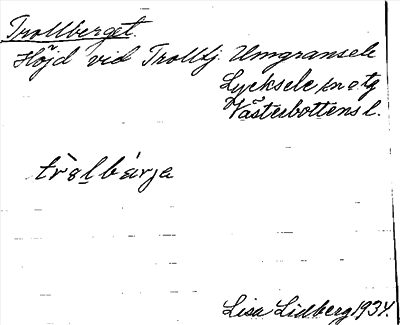 Trollberget.
Höjd vid Trolltj. Umgransele
Lycksele sn o tg
Västerbottens l.
tròl bárja
Lisa Lidberg 1934.